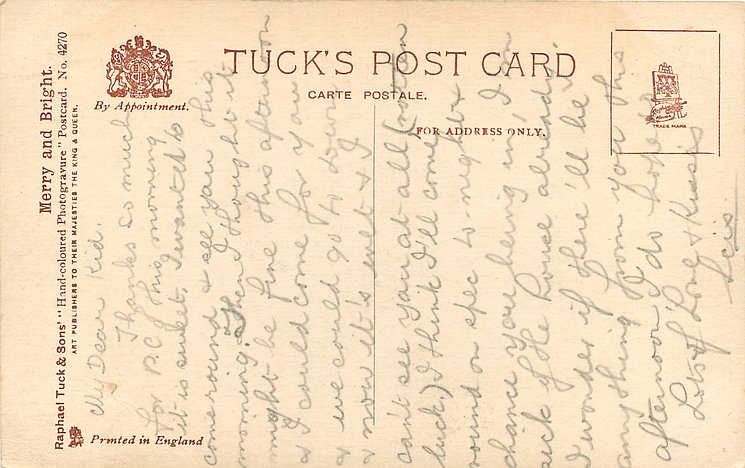 TUCK'S POST CARD
CARTE POSTALE.
By Appointment.
FOR ADDRESS ONLY.
TRADE MARK
Merry and Bright.
Raphael Tuck & Sons' "Hand-coloured Photogravure" Postcard. No. 4270
ART PUBLISHERS TO THEIR MAJESTIES THE KING & QUEEN.
Printed in England
My Dear Kid.
Thanks so much
for P.C. this morning
it is sweet. I wanted to
come round & see you this
morning. Then I thought it
might be fine this afternoon
& I could come for you
& we could go to
& now it's wet & I
can't see you at all (
luck.) I think I'll come
round on spec to night &
chance you being in, I am
sick of the house already
I wonder if there'll be
anything from you this
afternoon I do hope so
Lots of Love & Kisses